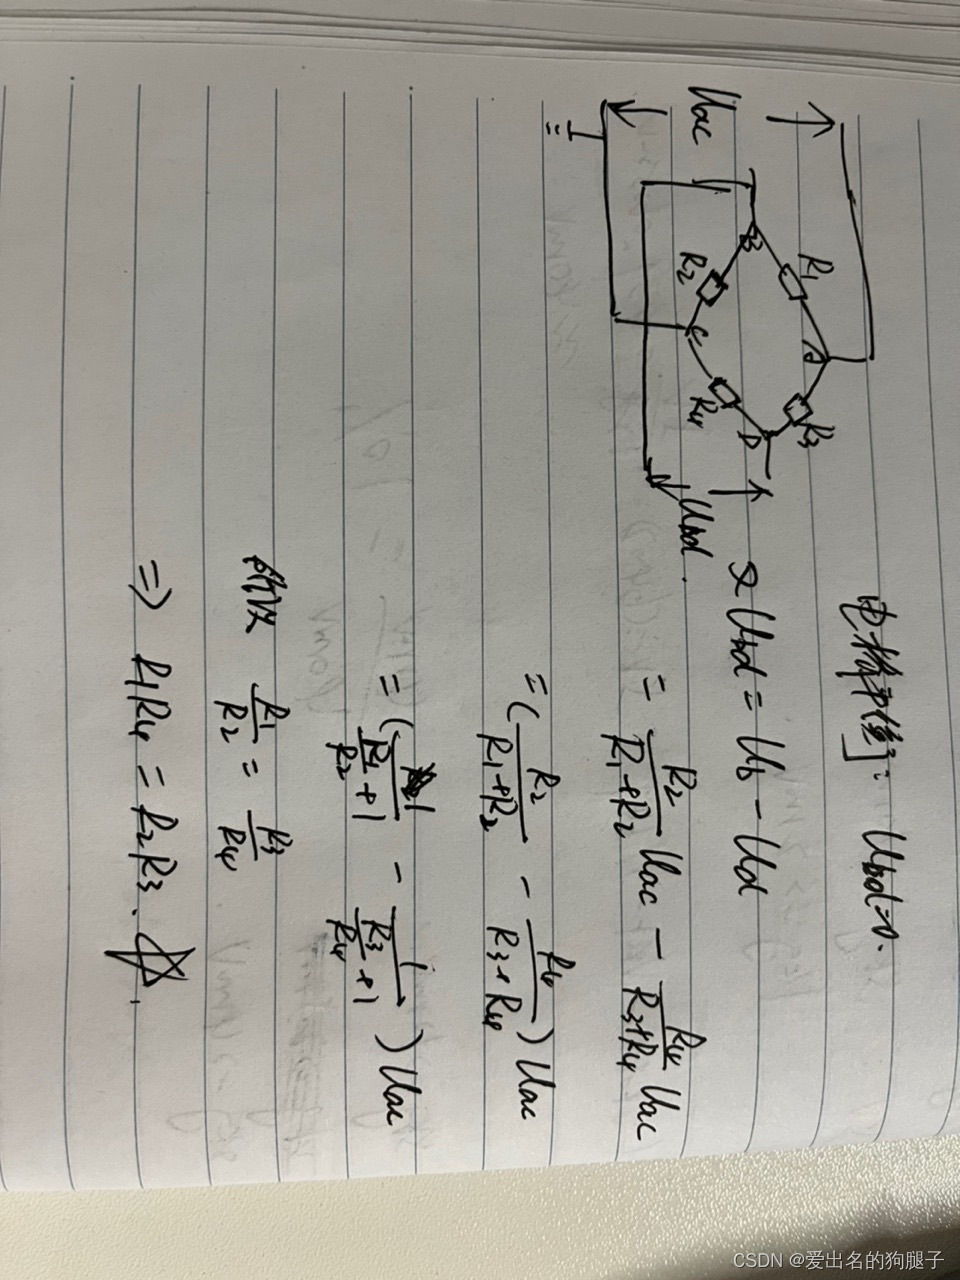 电桥平衡: Ubd=0.
Uac
R1
A
R3
B
D
R2
C
R4
Ubd.
又 Ubd = Ub - Ud
= \frac{R2}{R1+R2} Uac - \frac{R4}{R3+R4} Uac
= (\frac{R2}{R1+R2} - \frac{R4}{R3+R4}) Uac
= (\frac{1}{\frac{R1}{R2}+1} - \frac{1}{\frac{R3}{R4}+1}) Uac
所以 \frac{R1}{R2} = \frac{R3}{R4}
=> R1R4 = R2R3. ☆.
CSDN @爱出名的狗腿子